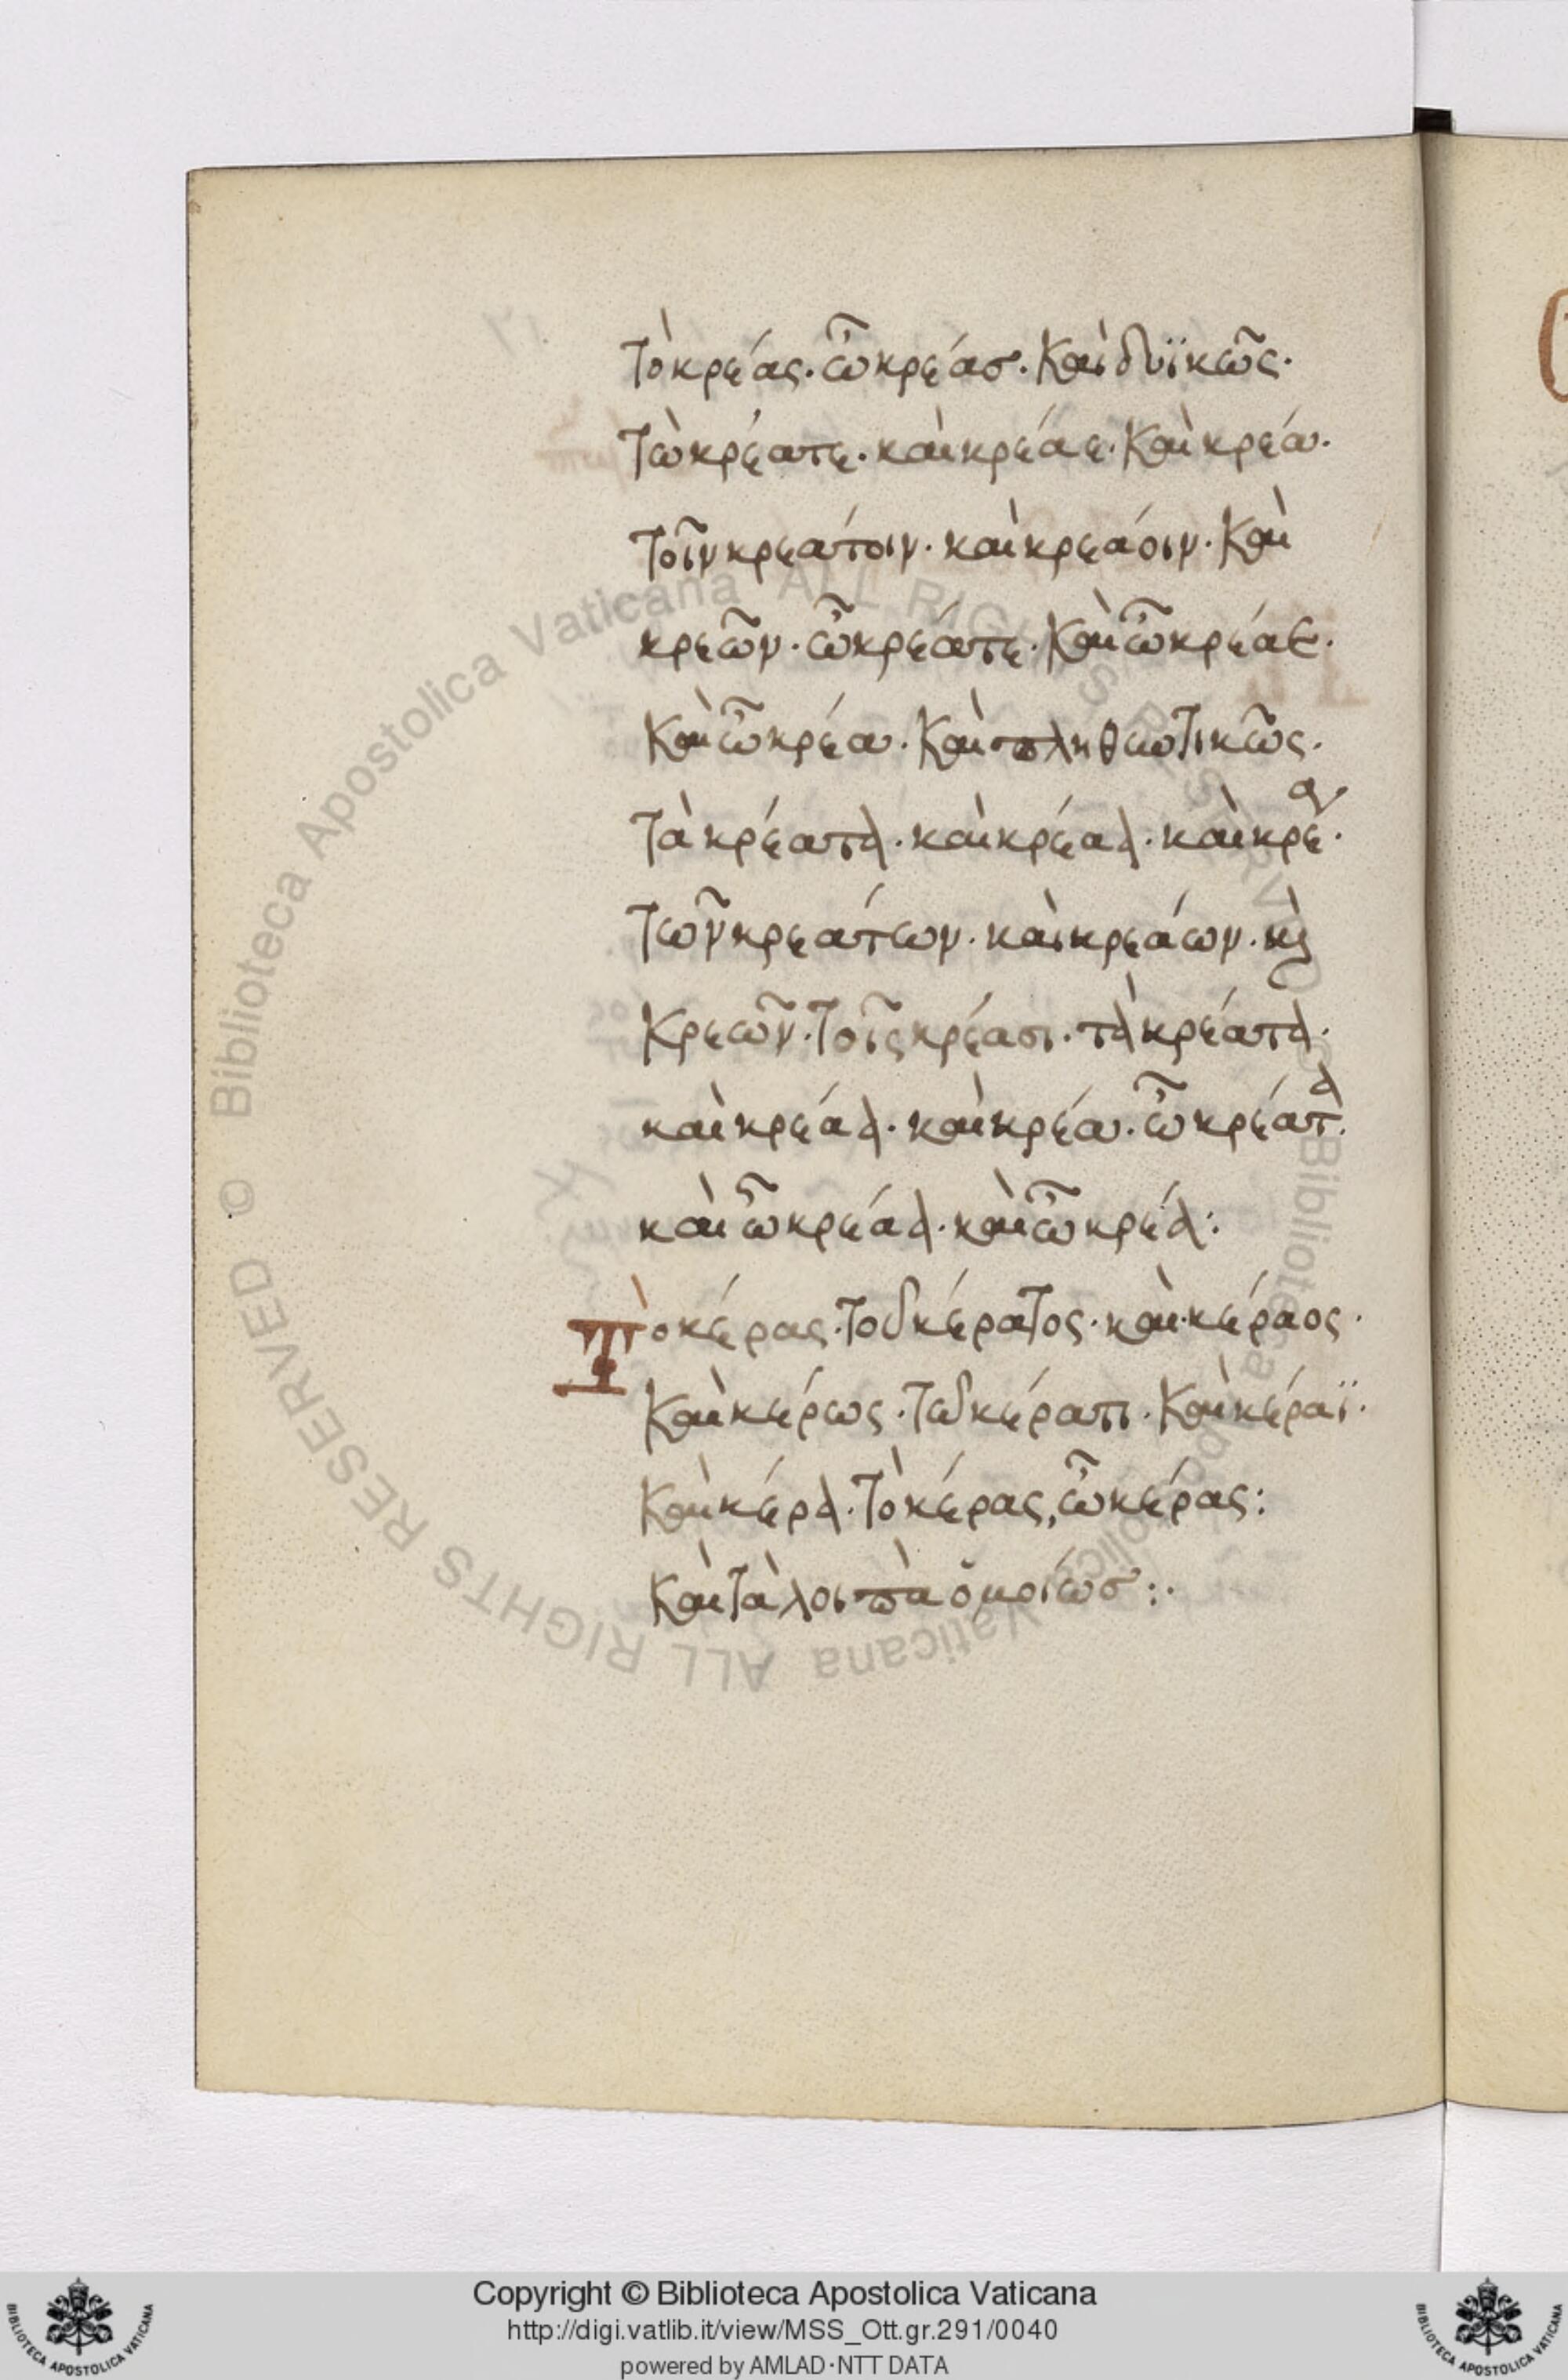 Τὸ κρέας. ὦ κρέασ. Καὶ δυϊκῶς.
Τὼ κρέατε. καὶ κρέαε. Καὶ κρέα.
Τοῖν κρεάτοιν. καὶ κρεάοιν. Καὶ
κρεῶν. ὦ κρέατε. Καὶ ὦ κρέαε.
Καὶ ὦ κρέα. Καὶ πληθωτικῶς.
Τὰ κρέατα. καὶ κρέαα. καὶ κρέα.
Τῶν κρεάτων. καὶ κρεάων. κὶ
Κρεῶν. Τοῖς κρέασι. τὰ κρέατα.
καὶ κρέαα. καὶ κρέα. ὦ κρέατα.
καὶ ὦ κρέαα. καὶ ὦ κρέα:
Τὸ κέρας. Τοῦ κέρατος. καὶ κέραος.
Καὶ κέρως. Τῶ κέρατι. Καὶ κέραϊ.
Καὶ κέρα. Τὸ κέρας, ὦ κέρας:
Καὶ Τὰ λοιπὰ ὁμοίωσ:.
Biblioteca Apostolica Vaticana ALL RIGHTS RESERVED ©
Biblioteca Apostolica Vaticana ALL RIGHTS RESERVED ©
Copyright © Biblioteca Apostolica Vaticana
http://digi.vatlib.it/view/MSS_Ott.gr.291/0040
powered by AMLAD·NTT DATA
BIBLIOTECA APOSTOLICA VATICANA
BIBLIOTECA APOSTOLICA VATICANA